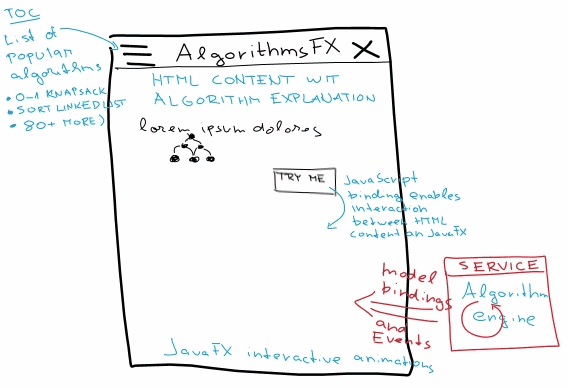 TOC
List of
popular
algorithms
• 0-1 KNAPSACK
• SORT LINKEDLIST
• 80+ MORE)
AlgorithmsFX X
HTML CONTENT WIT
ALGORITHM EXPLANATION
lorem ipsum dolores
TRY ME
JavaScript
binding enables
interaction
between HTML
content an JavaFX
SERVICE
Algorithm
engine
model
bindings
and
Events
JavaFX interactive animations